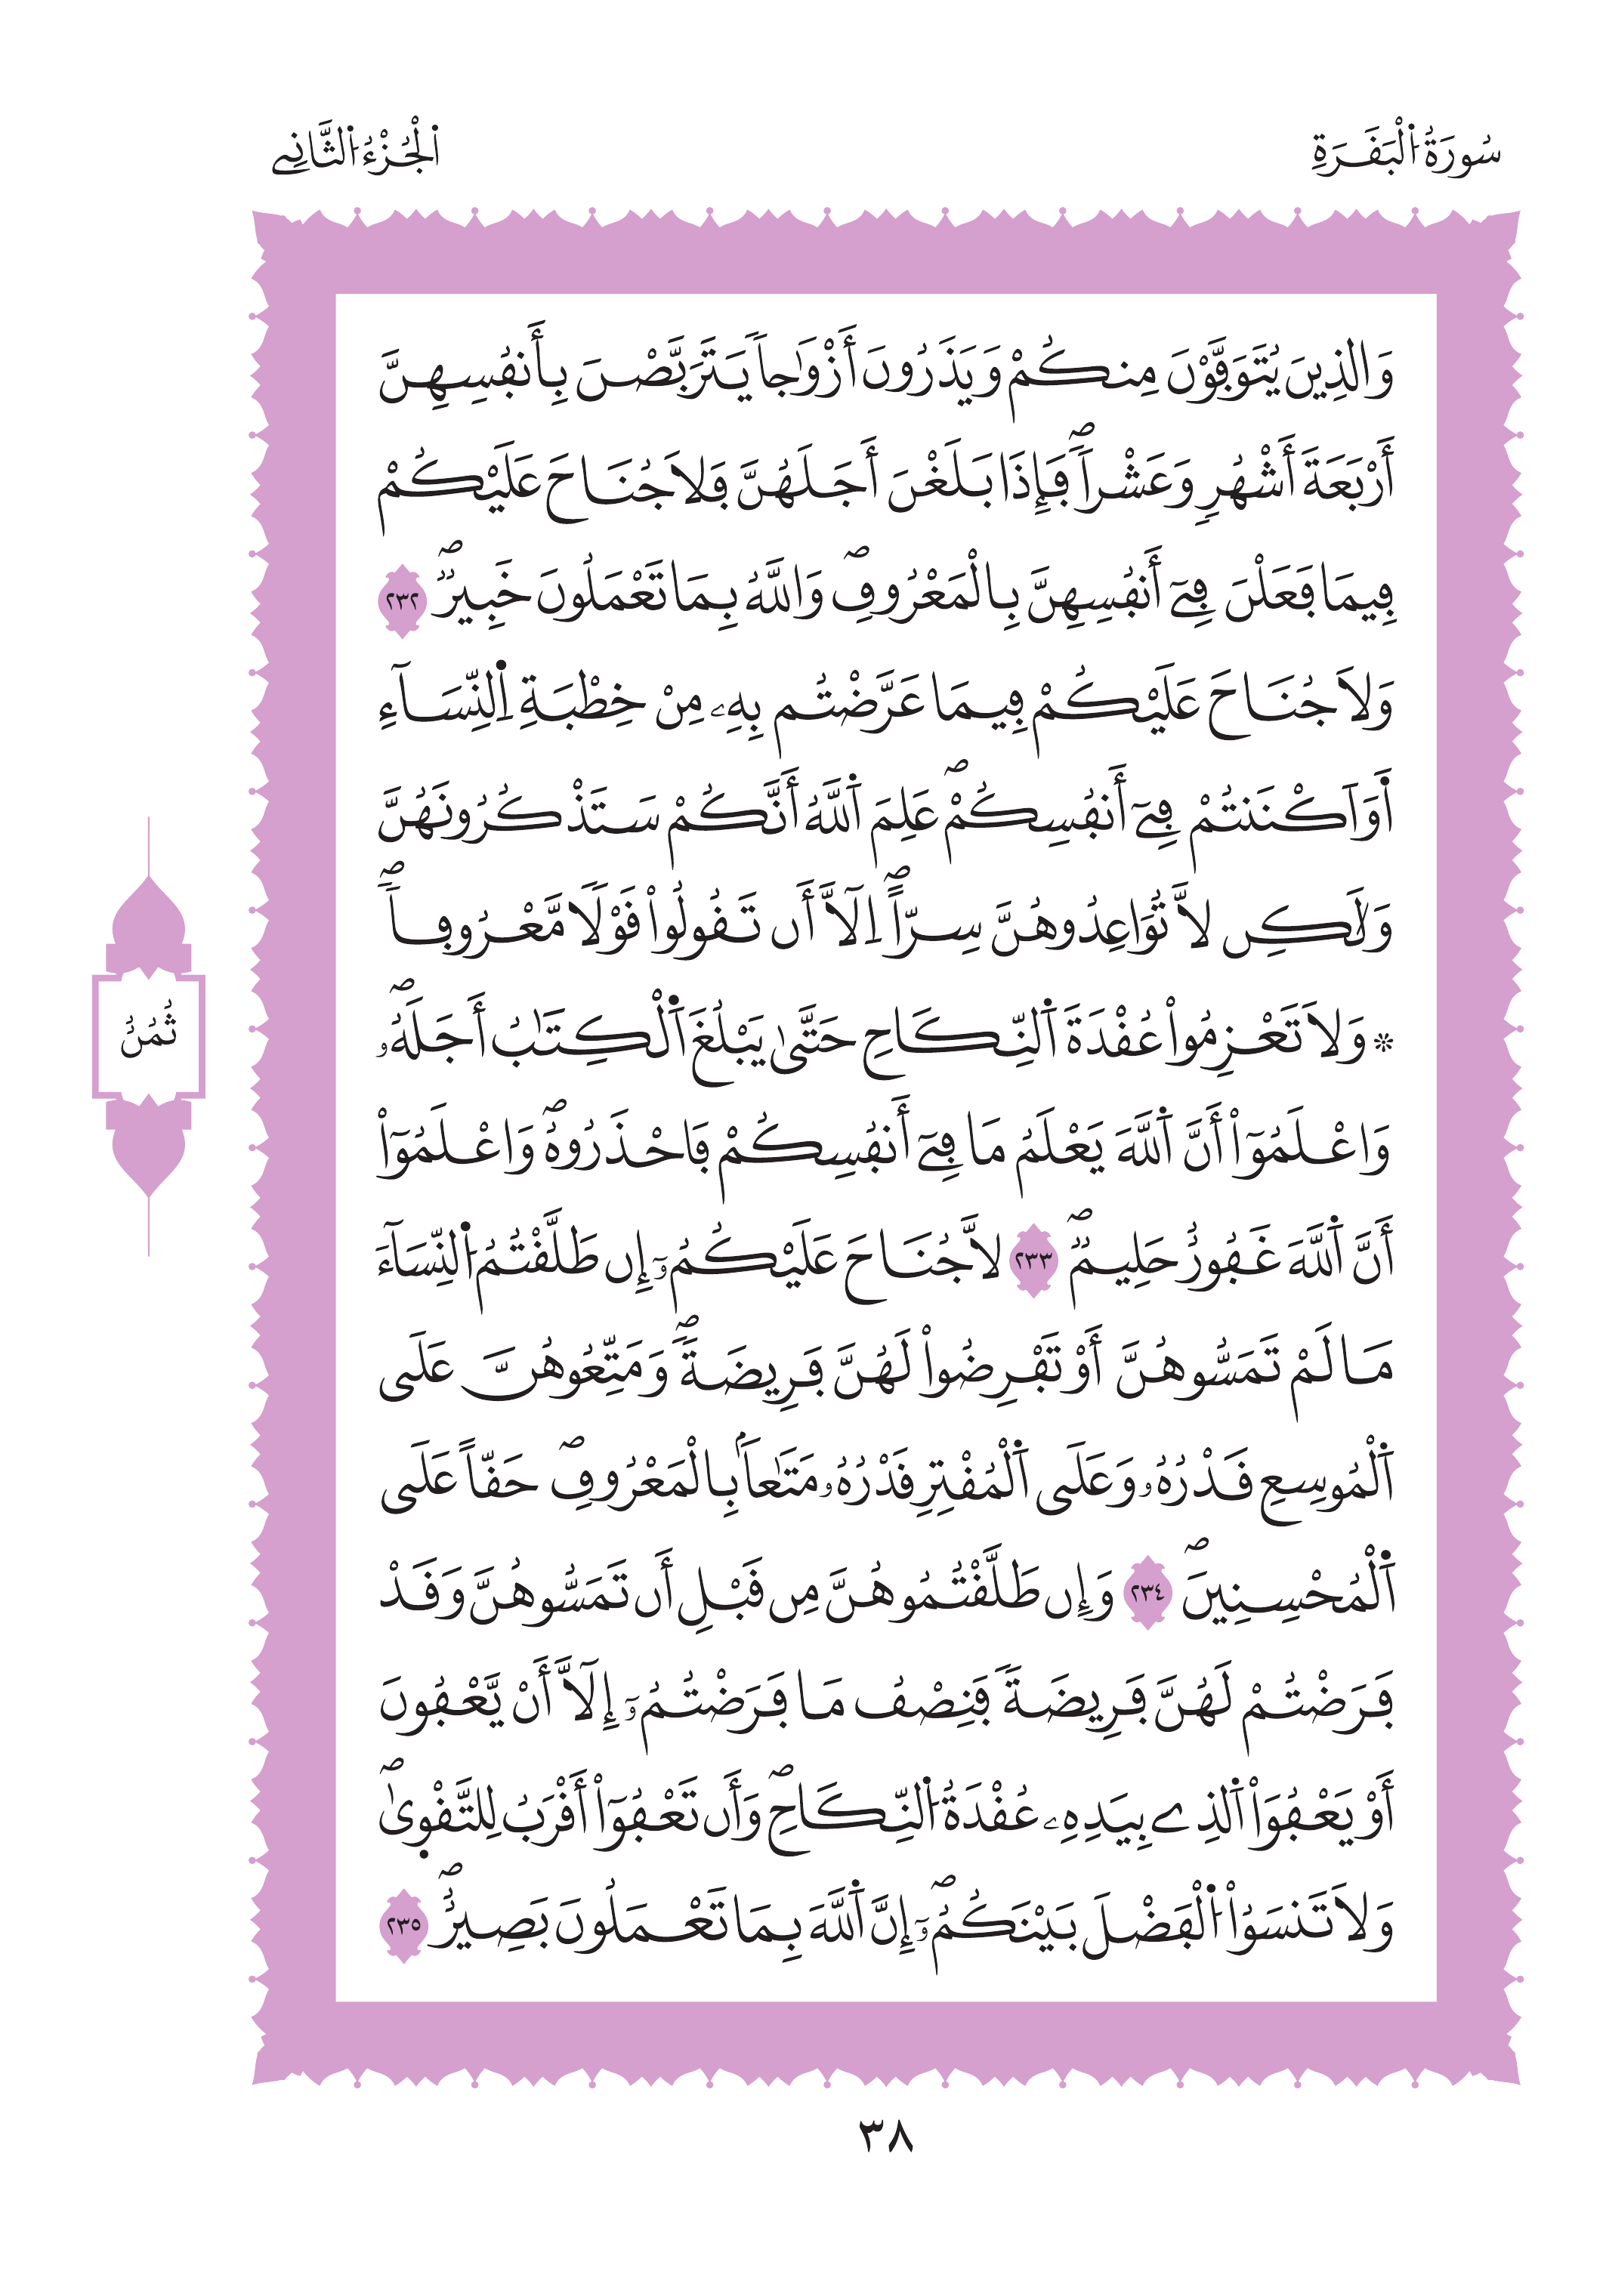 سُورَةُ اُ۬لْبَقَرَةِ
اَ۬لْجُزْءُ اُ۬لثَّانِے
وَالذِينَ يُتَوَفَّوْنَ مِنكُمْ وَيَذَرُونَ أَزْوَٰجاٗ يَتَرَبَّصْنَ بِأَنفُسِهِنَّ
أَرْبَعَةَ أَشْهُرٖ وَعَشْراٗۖ فَإِذَا بَلَغْنَ أَجَلَهُنَّ فَلَا جُنَاحَ عَلَيْكُمْ
فِيمَا فَعَلْنَ فِےٓ أَنفُسِهِنَّ بِالْمَعْرُوفِۖ وَاللَّهُ بِمَا تَعْمَلُونَ خَبِيرٞۖ ٢٣٢
وَلَا جُنَاحَ عَلَيْكُمْ فِيمَا عَرَّضْتُم بِهِۦ مِنْ خِطْبَةِ اِ۬لنِّسَآءِ
اَ۬وَ اَكْنَنتُمْ فِےٓ أَنفُسِكُمْۖ عَلِمَ اَ۬للَّهُ أَنَّكُمْ سَتَذْكُرُونَهُنَّ
وَلَٰكِن لَّا تُوَاعِدُوهُنَّ سِرّاًۖ اِلَّآ أَن تَقُولُواْ قَوْلاٗ مَّعْرُوفاٗۖ
۞ وَلَا تَعْزِمُواْ عُقْدَةَ اَ۬لنِّكَاحِ حَتَّىٰ يَبْلُغَ اَ۬لْكِتَٰبُ أَجَلَهُۥۖ
وَاعْلَمُوٓاْ أَنَّ اَ۬للَّهَ يَعْلَمُ مَا فِےٓ أَنفُسِكُمْ فَاحْذَرُوهُۖ وَاعْلَمُوٓاْ
أَنَّ اَ۬للَّهَ غَفُورٌ حَلِيمٞۖ ٢٣٣ لَّا جُنَاحَ عَلَيْكُمُۥٓ إِن طَلَّقْتُمُ اُ۬لنِّسَآءَ
مَا لَمْ تَمَسُّوهُنَّ أَوْ تَفْرِضُواْ لَهُنَّ فَرِيضَةٗۖ وَمَتِّعُوهُنَّ عَلَى
اَ۬لْمُوسِعِ قَدْرُهُۥ وَعَلَى اَ۬لْمُقْتِرِ قَدْرُهُۥ مَتَٰعاَۢ بِالْمَعْرُوفِۖ حَقّاً عَلَى
اَ۬لْمُحْسِنِينَۖ ٢٣٤ وَإِن طَلَّقْتُمُوهُنَّ مِن قَبْلِ أَن تَمَسُّوهُنَّ وَقَدْ
فَرَضْتُمْ لَهُنَّ فَرِيضَةٗ فَنِصْفُ مَا فَرَضْتُمُۥٓ إِلَّآ أَنْ يَّعْفُونَ
أَوْ يَعْفُوَاْ اَ۬لذِے بِيَدِهِۦ عُقْدَةُ اُ۬لنِّكَاحِۖ وَأَن تَعْفُوٓاْ أَقْرَبُ لِلتَّقْو۪ىٰۖ
وَلَا تَنسَوُاْ اُ۬لْفَضْلَ بَيْنَكُمُۥٓۖ إِنَّ اَ۬للَّهَ بِمَا تَعْمَلُونَ بَصِيرٌۖ ٢٣٥
ثُمُنُ
٣٨